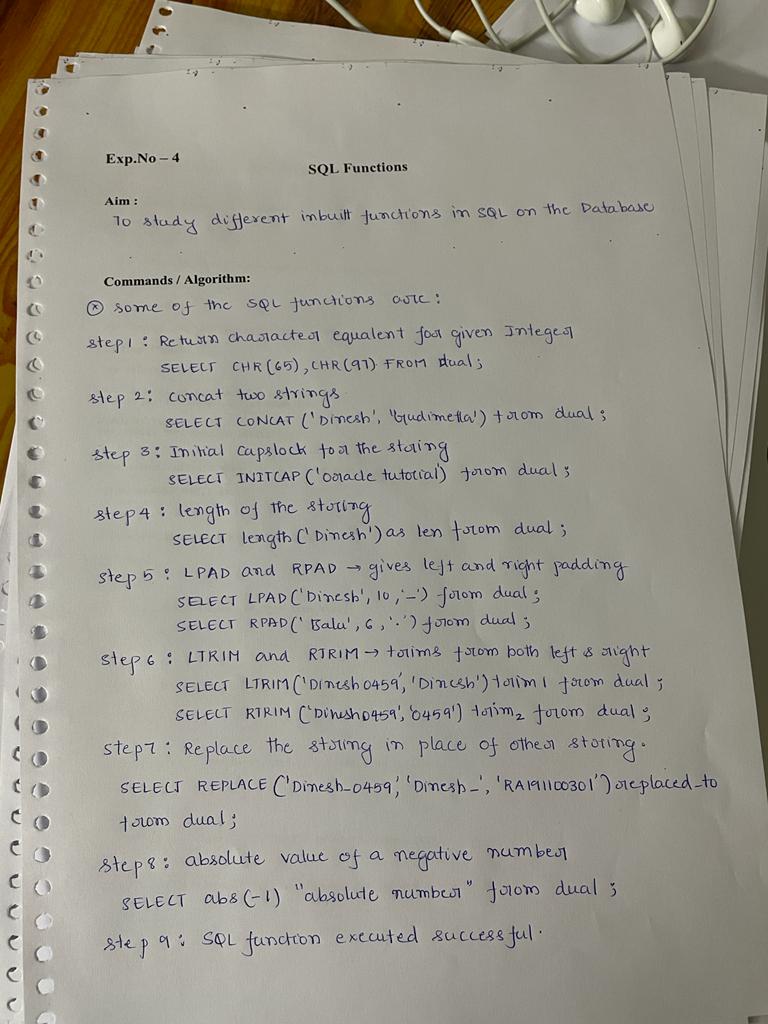 Exp.No – 4
SQL Functions
Aim :
To study different inbuilt functions in SQL on the Database
Commands / Algorithm:
⊛ some of the SQL functions are :
step 1 : Return character equalent for given Integer
SELECT CHR (65), CHR (97) FROM dual ;
step 2 : concat two strings
SELECT CONCAT ('Dinesh', 'Gudimetla') from dual ;
step 3 : Initial capslock for the string
SELECT INITCAP ('Ooracle tutorial) from dual ;
step 4 : length of the string
SELECT length ('Dinesh') as len from dual ;
step 5 : LPAD and RPAD → gives left and right padding
SELECT LPAD ('Dinesh', 10, '–') from dual ;
SELECT RPAD (' Balu', 6, '.') from dual ;
step 6 : LTRIM and RTRIM → trims from both left & right
SELECT LTRIM ('Dinesh0459', 'Dinesh') trim1 from dual ;
SELECT RTRIM ('Dinesh0459', '0459') trim2 from dual ;
step 7 : Replace the string in place of other string .
SELECT REPLACE ('Dinesh_0459', 'Dinesh_', 'RA191100301') replaced_to
from dual ;
step 8 : absolute value of a negative number
SELECT abs (-1) "absolute number" from dual ;
step 9 : SQL function executed successful .